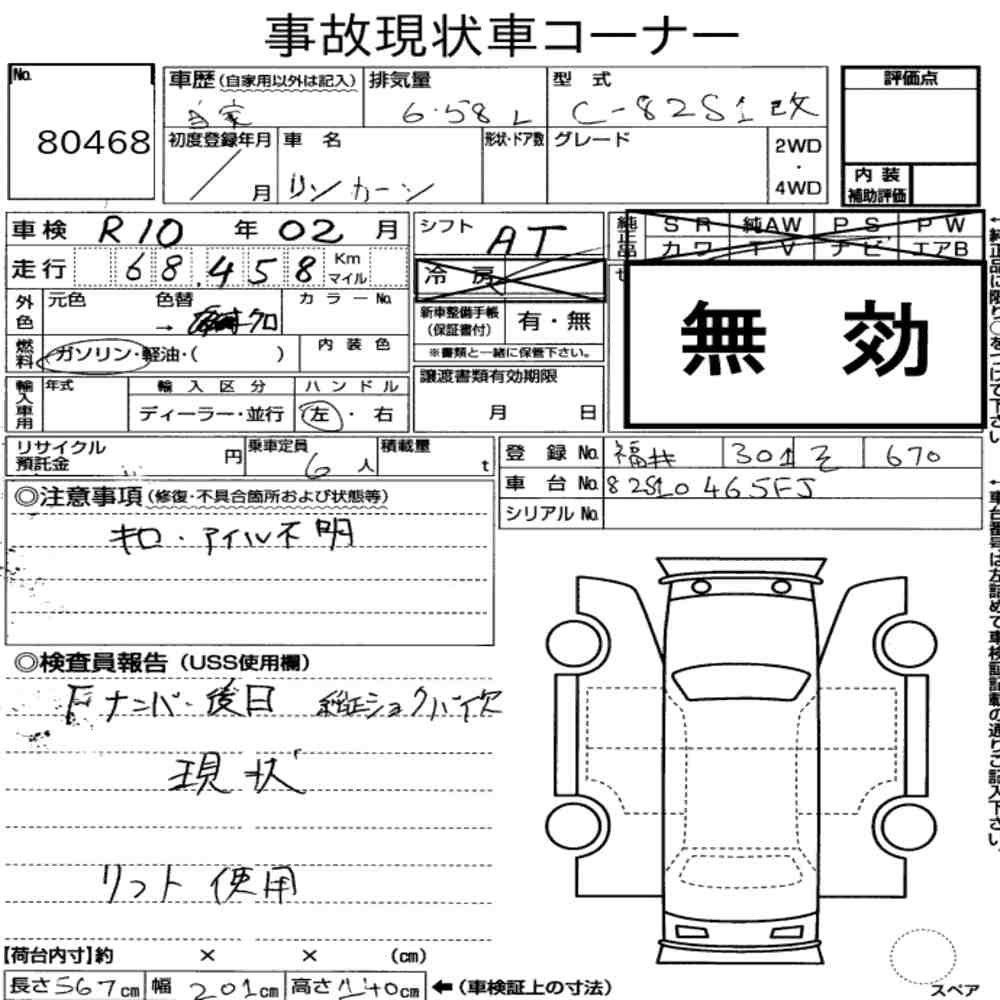 事故現状車コーナー
No. 80468
車歴(自家用以外は記入) 自家
排気量 6.58 L
型式 C-82S1改
評価点
初度登録年月 / 月
車名 リンカーン
形状・ドア数
グレード
2WD・4WD
内装補助評価
車検 R10 年 02 月
シフト AT
純正品 SR 純AW PS PW
カワ TV ナビ エアB
走行 68,458 Km マイル
冷房
外色 元色 色替 → クロ カラーNo.
新車整備手帳(保証書付) 有・無
※書類と一緒に保管下さい。
無効
燃料 ガソリン・軽油・( ) 内装色
譲渡書類有効期限 月 日
輸入車用 年式 輸入区分 ディーラー・並行 ハンドル 左・右
リサイクル預託金 円 乗車定員 6人 積載量 t
登録No. 福井 301 そ 670
車台No. 82S10465FJ
シリアルNo.
◎注意事項(修復・不具合箇所および状態等)
キロ・マイル不明
◎検査員報告(USS使用欄)
Fナンバー後日 純正ショックハイ欠
現状
リフト使用
【荷台内寸】約 × × (cm)
長さ567cm 幅201cm 高さ140cm ←(車検証上の寸法)
スペア
←純正品に限り○をつけて下さい
←車台番号は左詰めで車検証記載の通りご記入下さい。